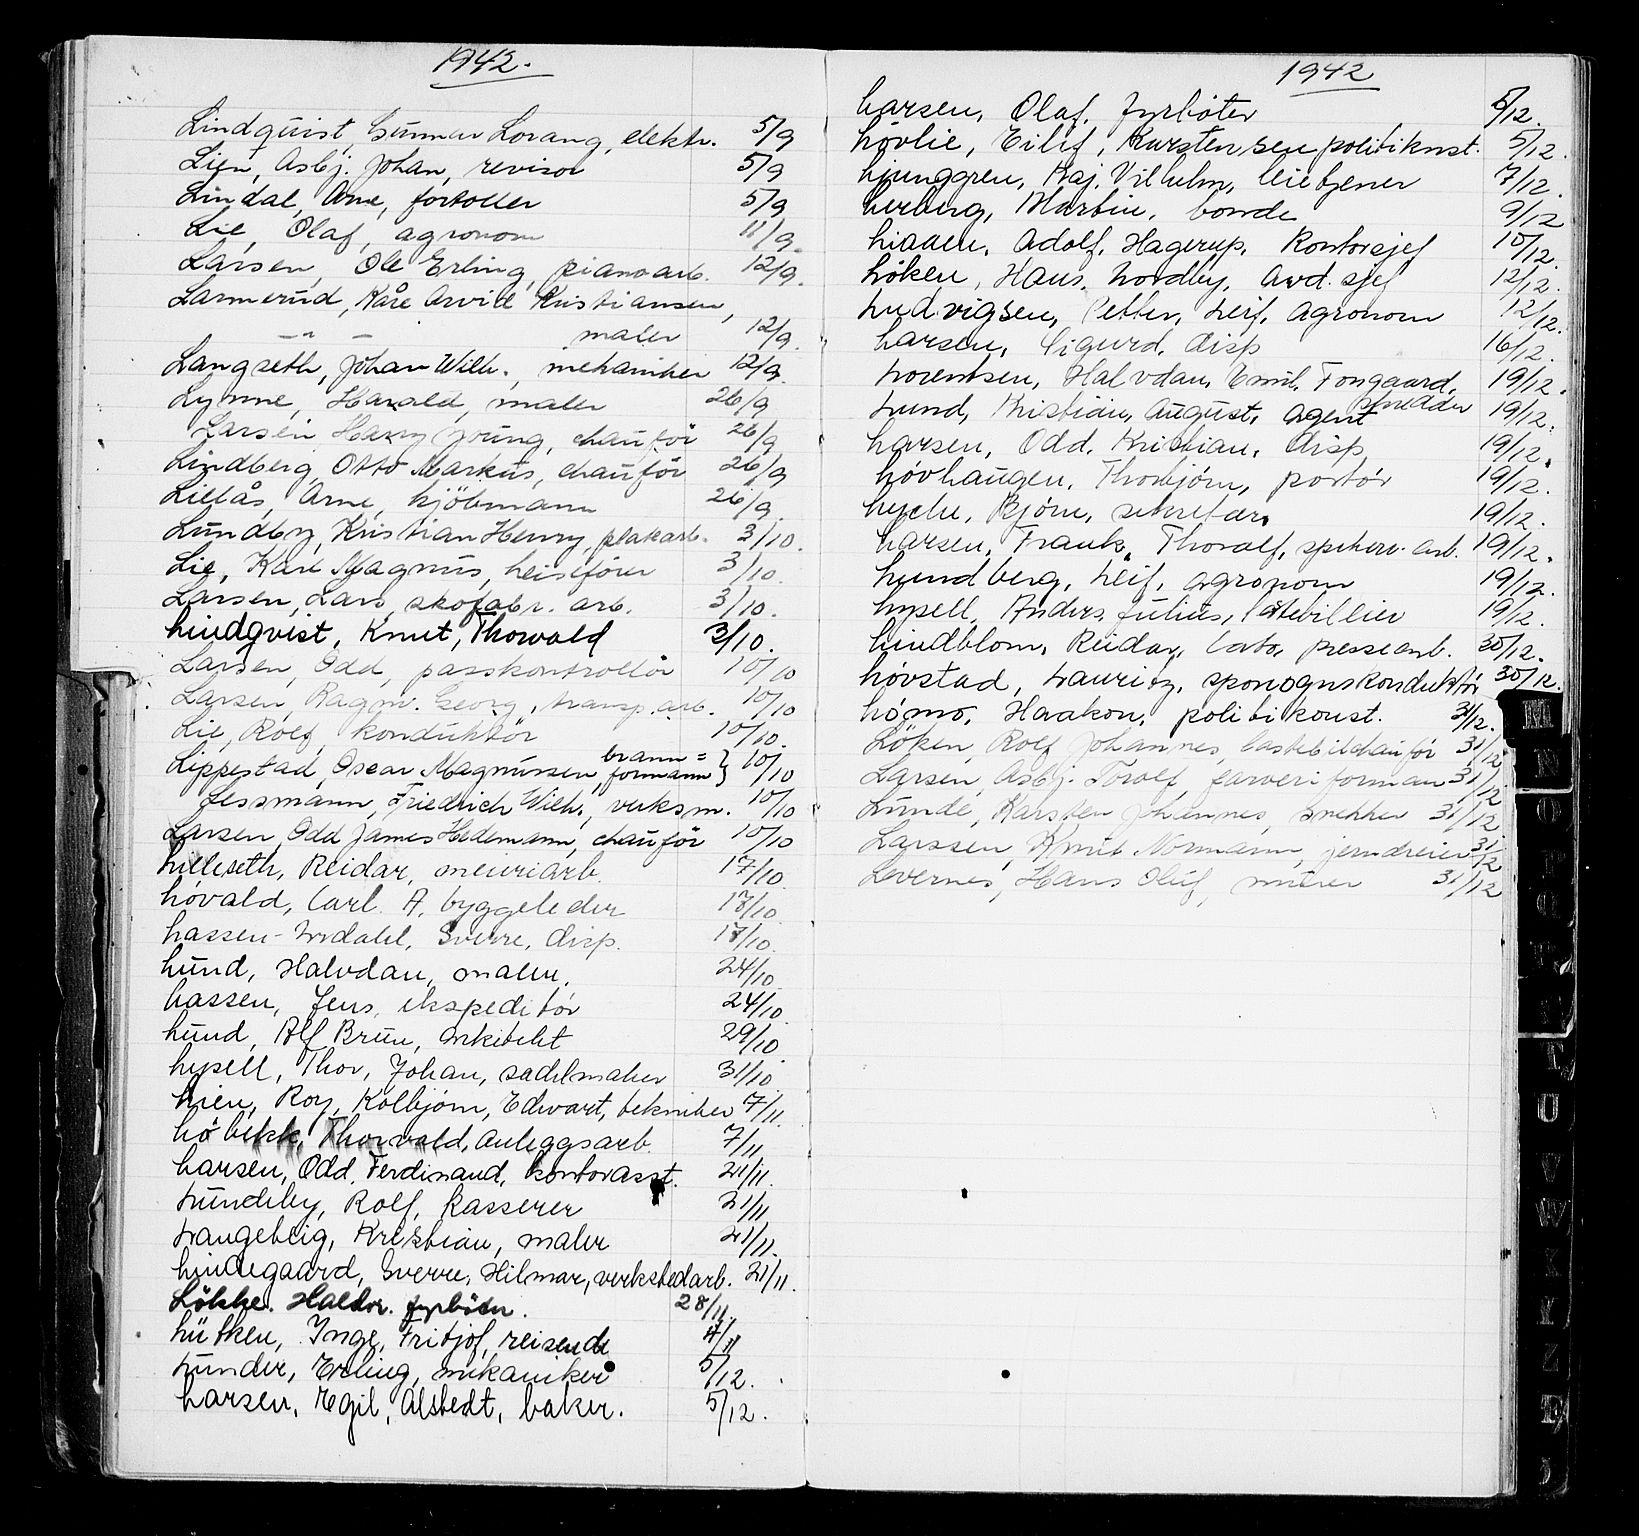 1942.
Lindquist, Gunnar Lorang, elektr. 5/9
Lien, Asbj. Johan, revisor 5/9
Lindal, Arne, fortoller 5/9
Lie, Olaf, agronom 11/9.
Larsen, Ole Erling, pianoarb. 12/9.
Larmerud, Kåre Arvid Kristiansen,
— " — maler 12/9.
Langseth, Johan Wilh., mekaniker 12/9.
Lynne, Harald, maler 26/9
Larsen Harry Joung, chauför 26/9
Lindberg, Otto Markus, chauför 26/9
Lillås, Arne, kjöbmann 26/9.
Lundby, Kristian Henry, platearb. 3/10.
Lie, Kåre Magnus, heisefører 3/10.
Larsen, Lars, skofabr. arb. 3/10.
Lindqvist, Knut, Thorvald 3/10.
Larsen, Odd, passkontrollør 10/10
Larsen, Ragnv. Georg, transp. arb. 10/10
Lie, Rolf, konduktör 10/10.
Lippestad, Oscar Magnussen, brann=formann } 10/10
Lessmann, Friedrich Wilh., verksm. 10/10
Larsen, Odd James Hedemann, chauför 10/10
Lilleseth, Reidar, meieriarb. 17/10.
Løvald, Carl. A. byggeleder 17/10.
Lassen-Urdahl, Sverre, disp. 17/10.
Lund, Halvdan, maler. 24/10.
Lassen, Jens, ekspeditør 24/10.
Lund, Alf Brun, arkitekt 29/10.
Lysell, Thor, Johan, sadelmaker 31/10.
Lien, Roy, Kolbjørn, Edvart, tekniker 7/11.
Løbekk, Thorvald, Anleggsarb. 7/11
Larsen, Odd. Ferdinand, kontorasst. 21/11.
Lundeby, Rolf, kasserer 21/11
Langebeig, Kristian, maler 21/11.
Lindegaard, Sverre, Hilmar, verkstedarb. 21/11.
Løkke. Haldor. fyrböter. 28/11.
Lütken, Inge, Fritjof, reisende
Lunder, Erling, mekaniker 5/12.
Larsen, Egil, Alstedt, baker. 5/12.
1942
Larsen, Olaf, fyrbøter 5/12.
Løvlie, Eilif, Karstensen politikonst. 5/12.
Ljunggren, Kaj. Vilhelm, leietjener 7/12.
Lerberg, Martin, bonde 9/12
Liaaen, Adolf, Hagerup, Kontorsjef 10/12.
Løken, Hans, Nordby, Avd. sjef 12/12.
Ludvigsen, Petter, Leif, Agronom 12/12.
Larsen, Sigurd, disp 16/12.
Lorentsen, Halvdan, Emil, Tongaard, skredder 19/12.
Lund, Kristian, August, Agent 19/12.
Larsen, Odd, Kristian, disp, 19/12.
Løvhaugen, Thorbjørn, portør 19/12.
Lyche, Bjørn, sekretær. 19/12.
Larsen, Frank, Thoralf, spikerv. arb. 19/12.
Lundberg, Leif, agronom 19/12.
Lysell, Anders, Julius, 19/12.
Lindblom, Reidar, presseanb. 30/12.
Løvstad, Lauritz, sporvognskonduktør 30/12.
Lømo, Haakon, politikonst. 31/12.
Löken, Rolf Johannes, lastebilchauför 31/12
Larsen, Asbj. Torolf, farveriforman 31/12
Lunde, Karsten Johannes, snekker 31/12
Larssen, Knut Normann, jerndreier 31/12
Levernes, Hans Oluf, murer 31/12
M
N
O
P
T
U
V
W
X
Y
Z
Æ